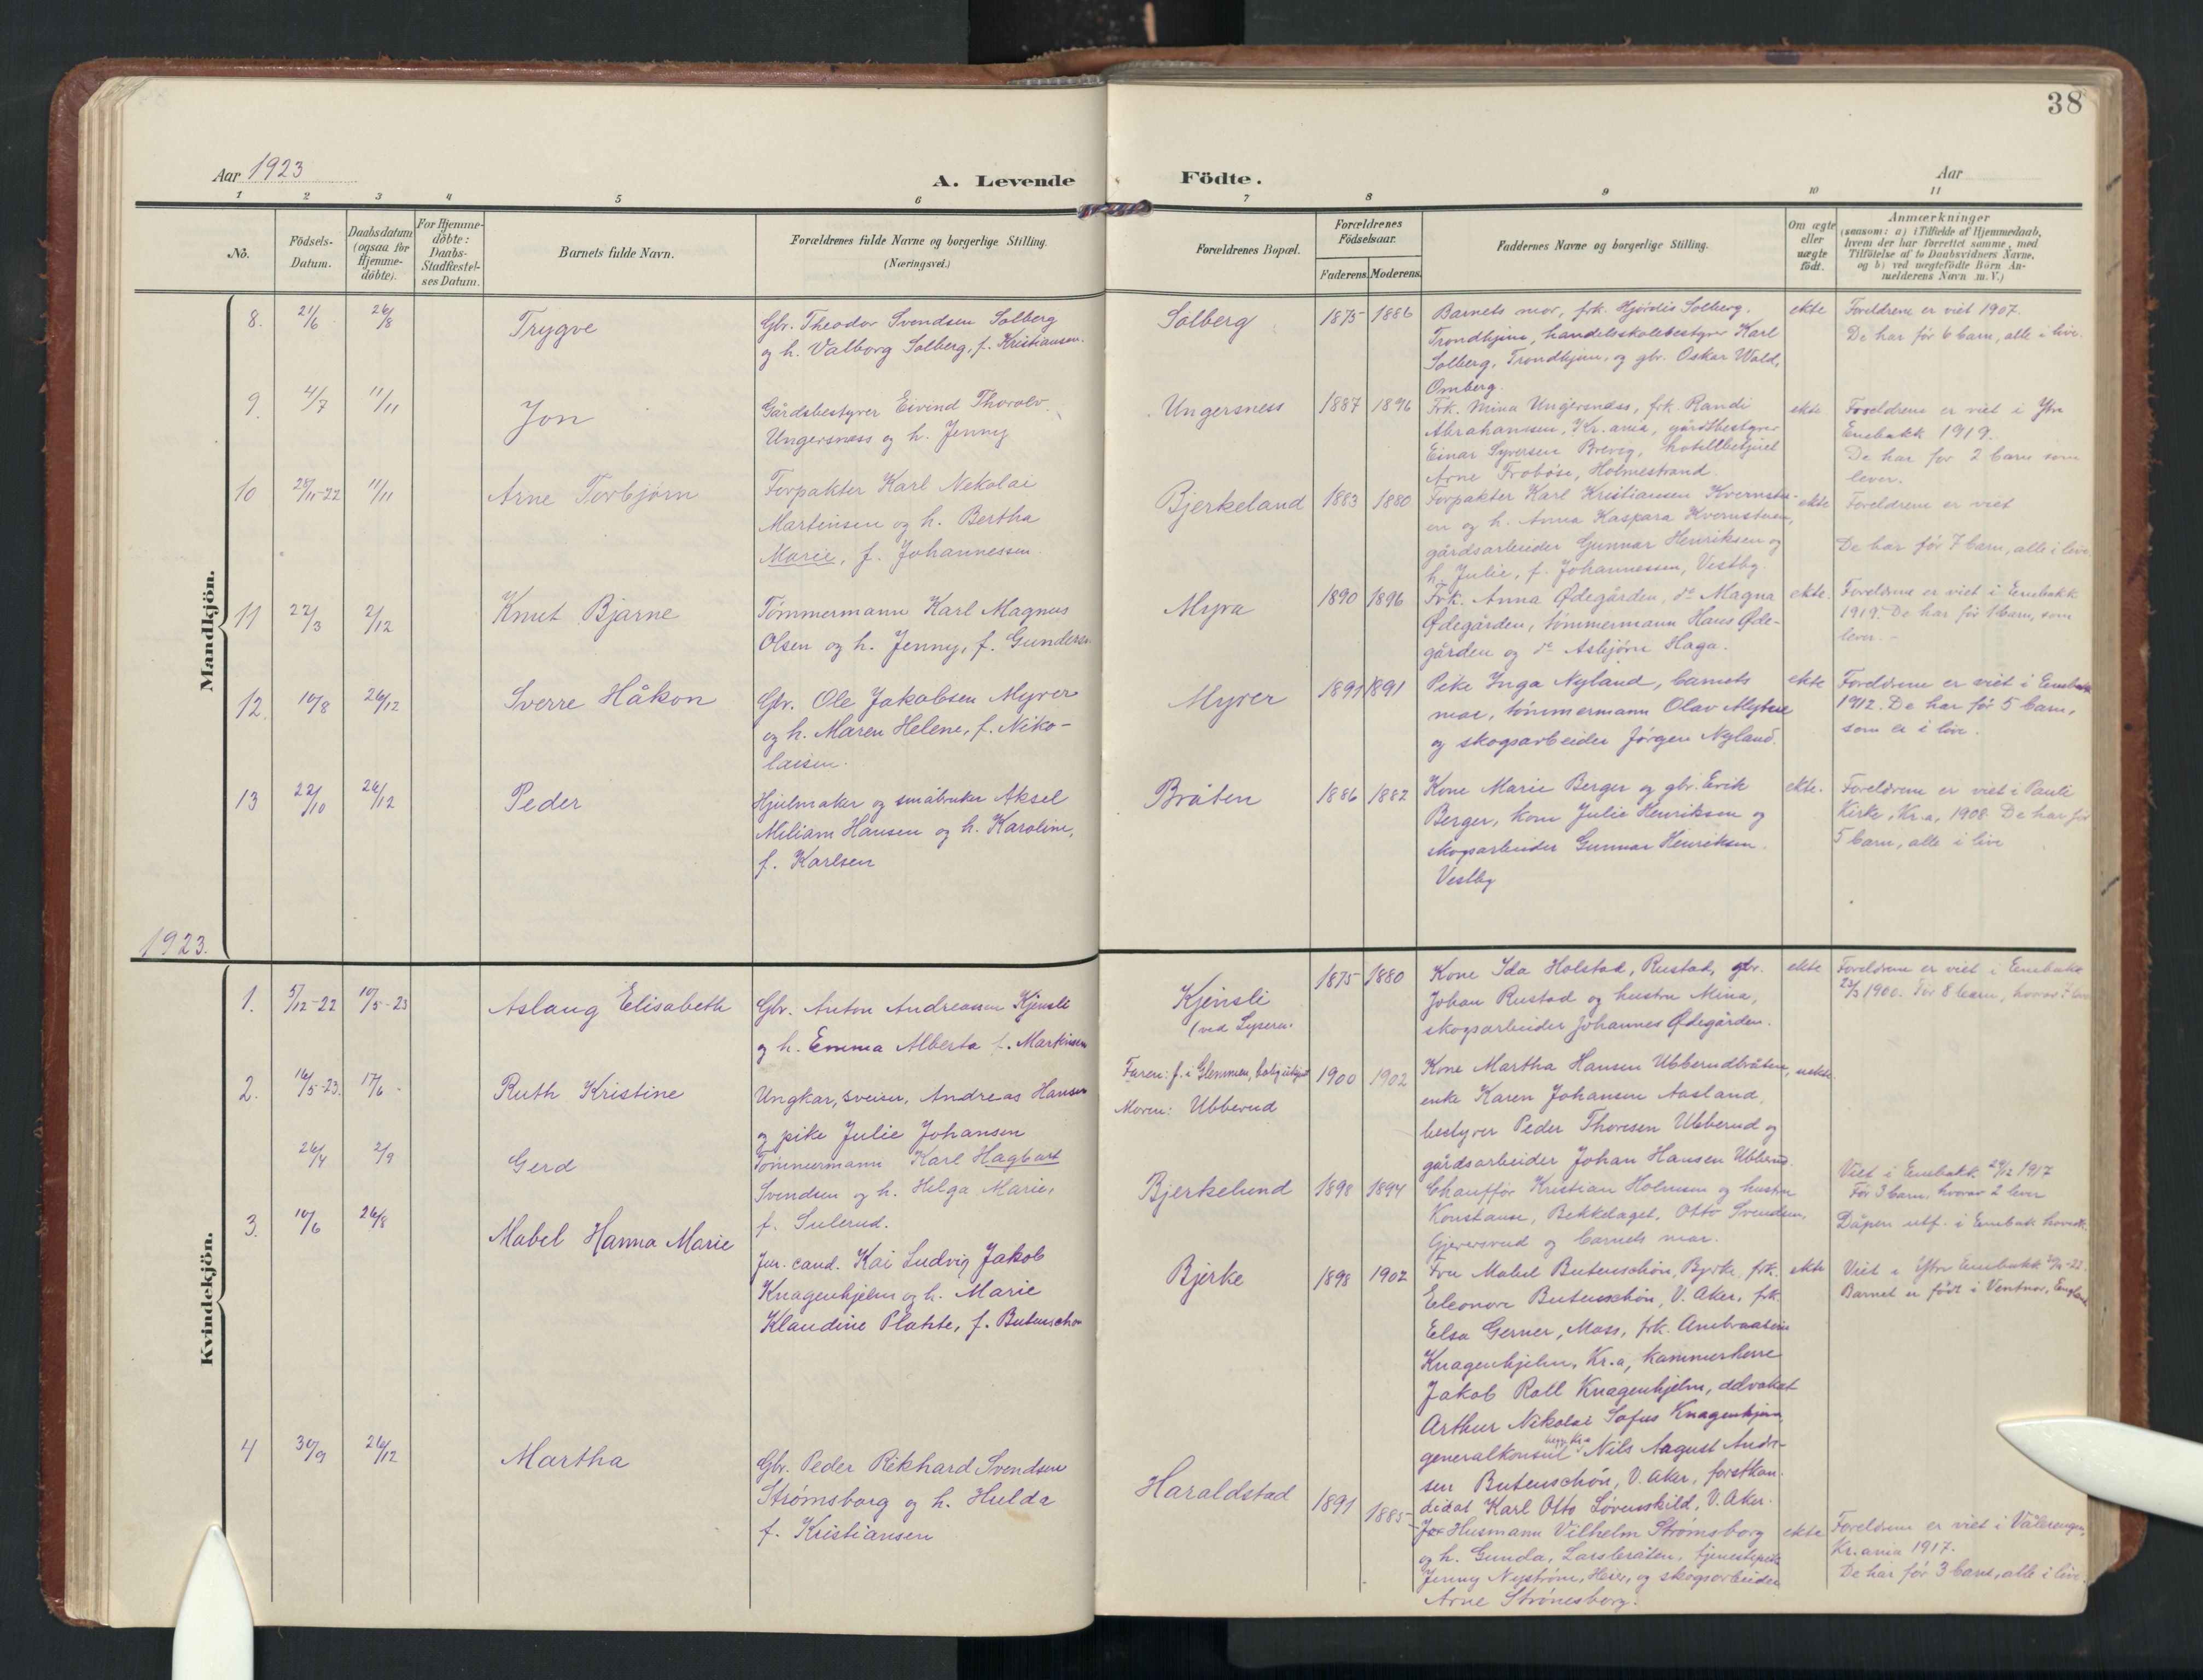 38
Aar 1923
A. Levende Födte.
Aar
1 2 3 4 5 6 7 8 9 10 11
No.
Födsels-Datum.
Daabsdatum (ogsaa for Hjemme-döbte).
For Hjemme-döbte: Daabs-Stadfæstel-ses Datum.
Barnets fulde Navn.
Forældrenes fulde Navne og borgerlige Stilling.
(Næringsvei.)
Forældrenes Bopæl.
Forældrenes Födselsaar.
Faderens. Moderens.
Faddernes Navne og borgerlige Stilling.
Om ægte eller uægte födt.
Anmærkninger
(saasom: a) i Tilfælde af Hjemmedaab,
hvem der har forrettet samme, med
Tilföielse af to Daabsvidners Navne,
og b) ved uægtefödte Börn An-
melderens Navn m. V.)
Mandkjön.
8. 21/6 26/8
Trygve
Gbr. Theodor Svendsen Solberg
og h. Valborg Solberg, f. Kristiansen.
Solberg
1875 1886
Barnets mor, frk. Hjördis Solberg,
Trondhjem, handelsskolebestyrer Karl
Solberg, Trondhjem, og gbr. Oskar Wold,
Omberg.
ekte
Foreldrene er viet 1907.
De har før 6 barn, alle i live.
9. 4/7 11/11
Jon
Gårdsbestyrer Eivind Thorolv
Ungersness og h. Jenny
Ungersness
1887 1896
Frk. Mina Ungersness, frk. Randi
Abrahansen, Kr.ania, gårdbestyrer
Einar Syversen Brevig, hotellbetjent
Arne Frobøse, Holmestrand.
ekte
Foreldrene er viet i Ytre
Enebakk 1919.
De har før 2 barn som
lever.
10 28/11-22 11/11
Arne Torbjørn
Forpakter Karl Nekolai
Martinsen og h. Bertha
Marie, f. Johannessen.
Bjerkeland
1883 1880
Forpakter Karl Kristiansen Kvernstu-
en og h. Anna Kaspara Kvernstuen,
gårdsarbeider Gunnar Henriksen og
h. Julie, f. Johannessen, Vestby.
ekte
Foreldrene er viet
De har før 7 barn, alle i live.
11 22/3 2/12
Knut Bjarne
Tømmermann Karl Magnus
Olsen og h. Jenny, f. Gundersen
Myra
1890 1896
Frk. Anna Ødegården, do Magna
Ødegården, tømmermann Hans Øde-
gården og do Asbjørn Haga.
ekte.
Foreldrene er viet i Enebakk
1919. De har før 1 barn, som
lever. -
12. 16/8 26/12
Sverre Håkon
Gbr. Ole Jakobsen Myrer
og h. Maren Helene, f. Niko-
laisen.
Myrer
1891 1891
Pike Inga Nyland, barnets
mor, tømmermann Olav
og skogsarbeider Jørgen Nyland.
ekte
Foreldrene er viet i Enebakk
1912. De har før 5 barn,
som er i live.
13 22/10 26/12
Peder
Hjulmaker og småbruker Aksel
Miliam Hansen og h. Karoline,
f. Karlsen
Bråten
1886 1882
Kone Marie Berger og gbr. Erik
Berger, kone Julie Henriksen og
skogsarbeider Gunnar Henriksen.
Vestby
ekte.
Foreldrene er viet i Pauli
Kirke, Kr.a, 1908. De har før
5 barn, alle i live
1923.
Kvindekjön.
1. 5/12-22 10/5-23
Aslaug Elisabeth
Gbr. Anton Andreassen Kjensli
og h. Emma Alberta f. Martinsen
Kjensli
(ved Lyseren.
1875 1880
Kone Ida Holstad, Rustad, gbr.
Johan Rustad og hustru Mina,
skogsarbeider Johannes Ødegården.
ekte
Foreldrene er viet i Enebakk
23/3 1900. Før 8 barn, hvorav 7 lever
2. 16/5-23. 17/6
Ruth Kristine
Ungkar, sveiser, Andreas Hansen
og pike Julie Johansen
Faren: f. i Glemmen,
Moren: Ubberud
1900 1902
Kone Martha Hansen Ubberudbråten,
enke Karen Johansen Aasland,
bestyrer Peder Thoresen Ubberud og
gårdsarbeider Johan Hansen Ubberud.
uekte.
26/4 2/9
Gerd
Tømmermann Karl Hagbart
Svendsen og h. Helga Marie,
f. Sulerud.
Bjerkelund
1898 1894
Chauffør Kristian Holmsen og hustru
Konstanse, Bekkelaget, Otto Svendsen,
Gjerersrud og barnets mor.
Viet i Enebakk 29/12 1917
Før 3 barn, hvorav 2 lever
Dåpen utf. i Enebak hovedk.
3. 10/6 26/8
Mabel Hanna Marie
Jur. cand. Kai Ludvig Jakob
Knagenhjelm og h. Marie
Klaudine Plahte, f. Butenschøn
Bjerke
1898 1902
Fru Mabel Butenschøn, Bjerke, frk.
Eleonore Butenschøn, V. Aker, frk.
Elsa Gerner, Moss, frk.
Knagenhjelm, Kr.a, kammerherre
Jakob Roll Knagenhjelm, advokat
Arthur Nikolai Sofus Knagenhjelm,
begge Kr.a
generalkonsul Nils August Andre-
sen Butenschøn, V. Aker, forstkan-
didat Karl Otto Løvenskiold, V. Aker.
ekte
Viet i Ytre Enebakk
Barnet er født i Ventnor, England
4 30/9 26/12
Martha
Gbr. Peder Rikhard Svendsen
Strømsborg og h. Hulda
f. Kristiansen
Haraldstad
1891 1885
Husmann Vilhelm Strømsborg
og h. Gunda, Larsbråten, tjenestepike
Jenny Nystrøm, Heier, og skogsarbeider
Arne Strømsborg.
ekte
Foreldrene er viet i Vålerengen,
Kr.ania 1917.
De har før 3 barn, alle i live.